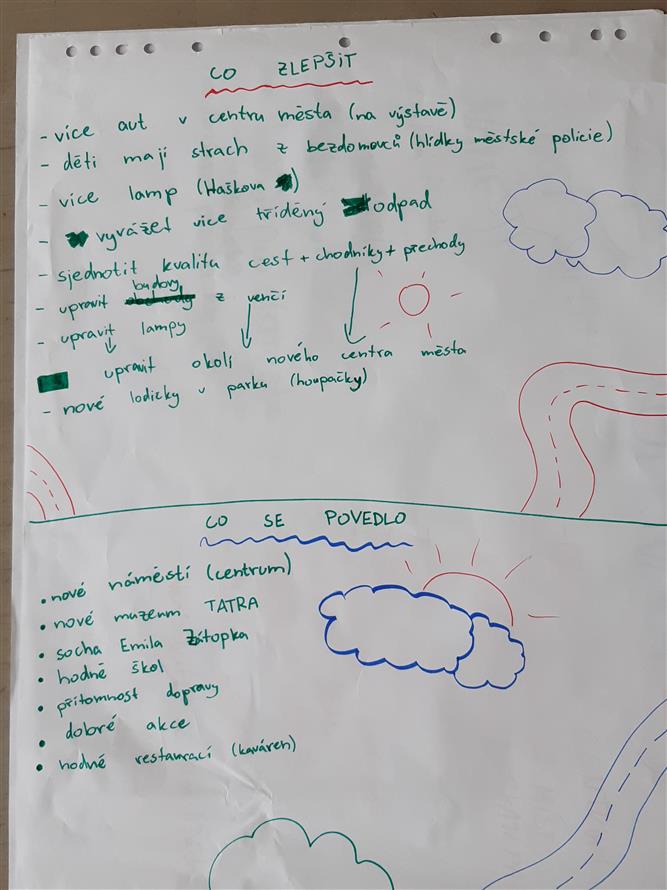 CO ZLEPŠIT
- více aut v centru města (na výstavě)
- děti mají strach z bezdomovců (hlídky městské policie)
- více lamp (Haškova)
- vyvážet více tříděný odpad
- sjednotit kvalitu cest + chodníky + přechody
budovy
- upravit z venčí
- upravit lampy
upravit okolí nového centra města
- nové lodičky v parku (houpačky)
CO SE POVEDLO
• nové náměstí (centrum)
• nové muzeum TATRA
• socha Emila Zátopka
• hodně škol
• přítomnost dopravy
• dobré akce
• hodně restaurací (kaváren)